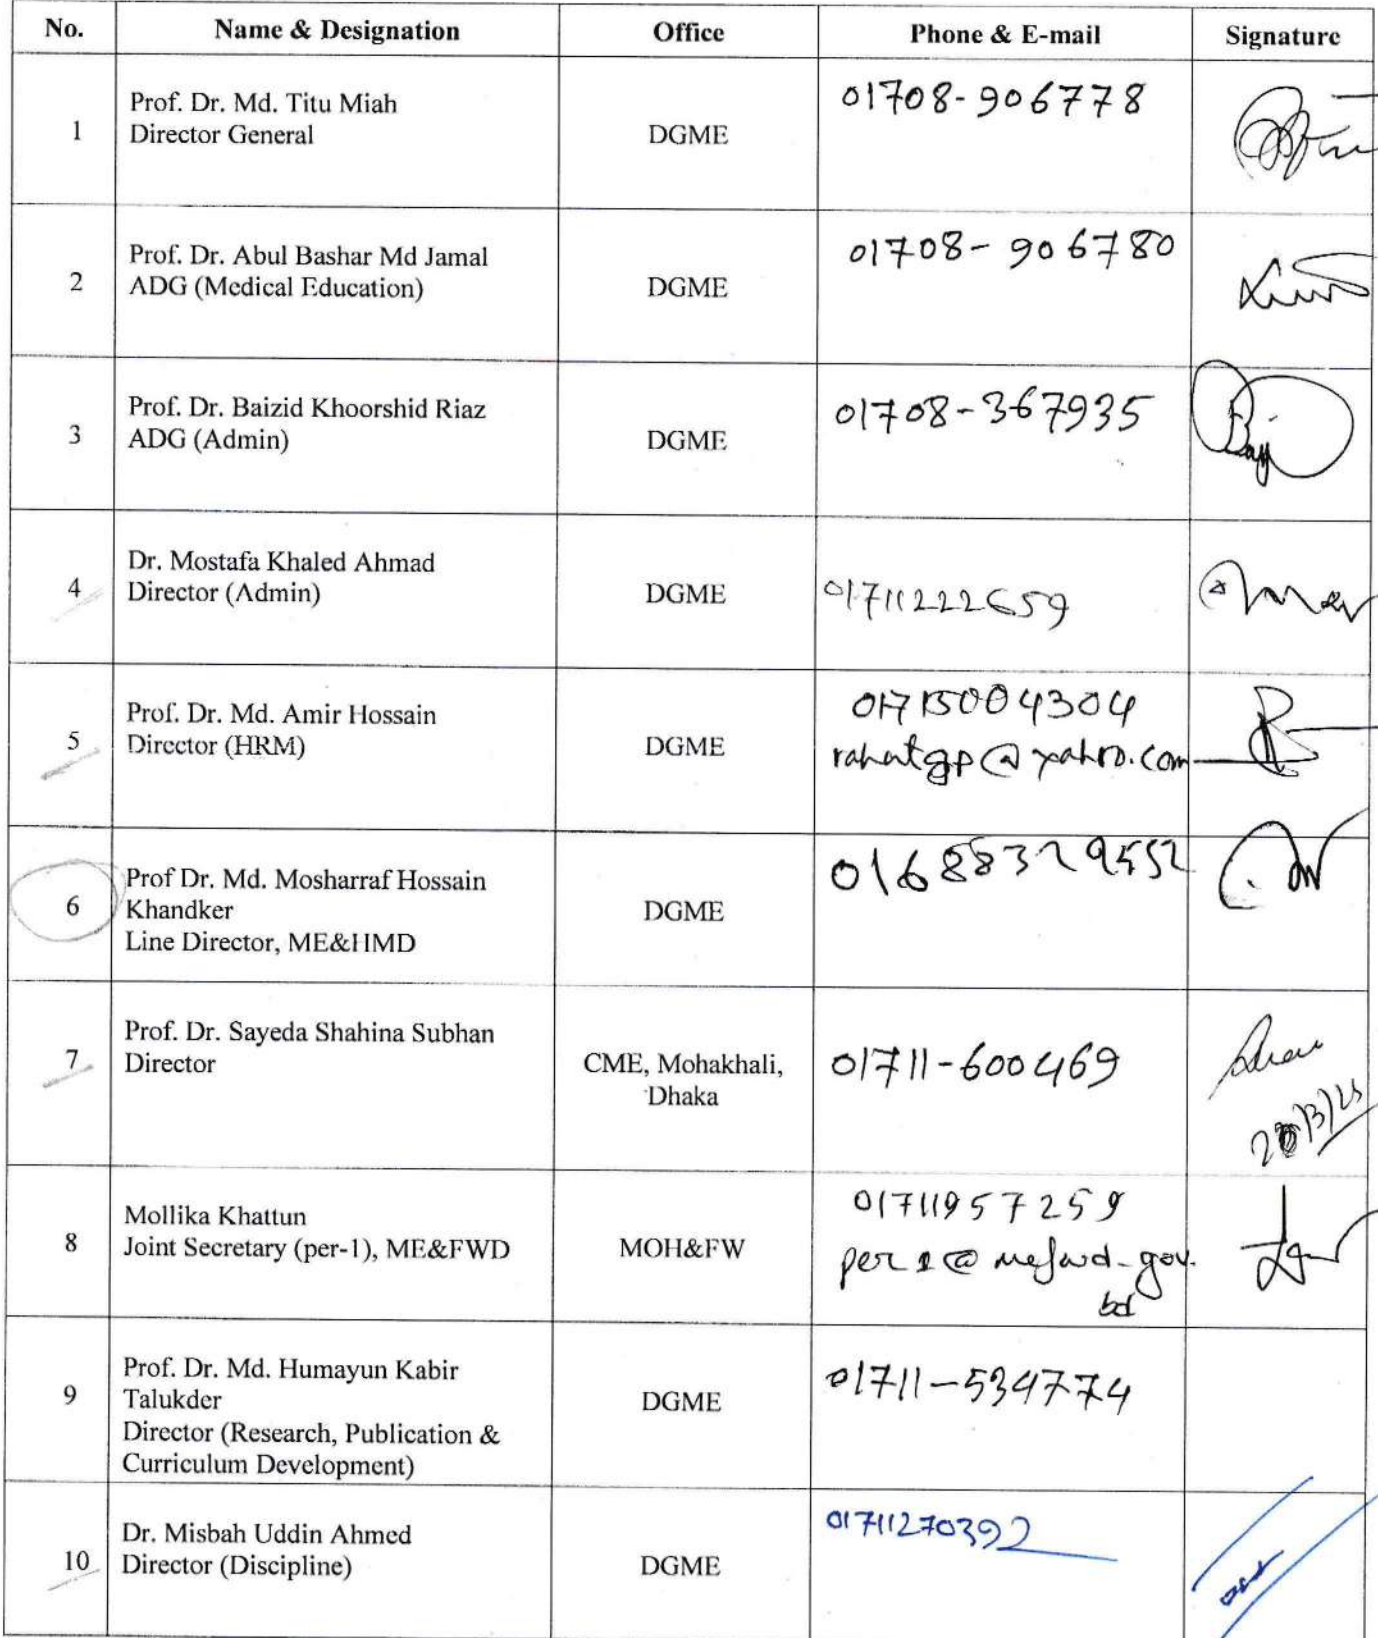 No. Name & Designation Office Phone & E-mail Signature
1 Prof. Dr. Md. Titu Miah
Director General
DGME
01708-906778
2 Prof. Dr. Abul Bashar Md Jamal
ADG (Medical Education)
DGME
01708-906780
3 Prof. Dr. Baizid Khoorshid Riaz
ADG (Admin)
DGME
01708-367935
4 Dr. Mostafa Khaled Ahmad
Director (Admin)
DGME
01711222659
5 Prof. Dr. Md. Amir Hossain
Director (HRM)
DGME
01715004304
rahatgp@yahoo.com
6 Prof Dr. Md. Mosharraf Hossain
Khandker
Line Director, ME&HMD
DGME
01688329552
7 Prof. Dr. Sayeda Shahina Subhan
Director
CME, Mohakhali,
Dhaka
01711-600469
8 Mollika Khattun
Joint Secretary (per-1), ME&FWD
MOH&FW
01711957259
per1@mefwd-gov.
bd
9 Prof. Dr. Md. Humayun Kabir
Talukder
Director (Research, Publication &
Curriculum Development)
DGME
01711-534774
10 Dr. Misbah Uddin Ahmed
Director (Discipline)
DGME
01711270392